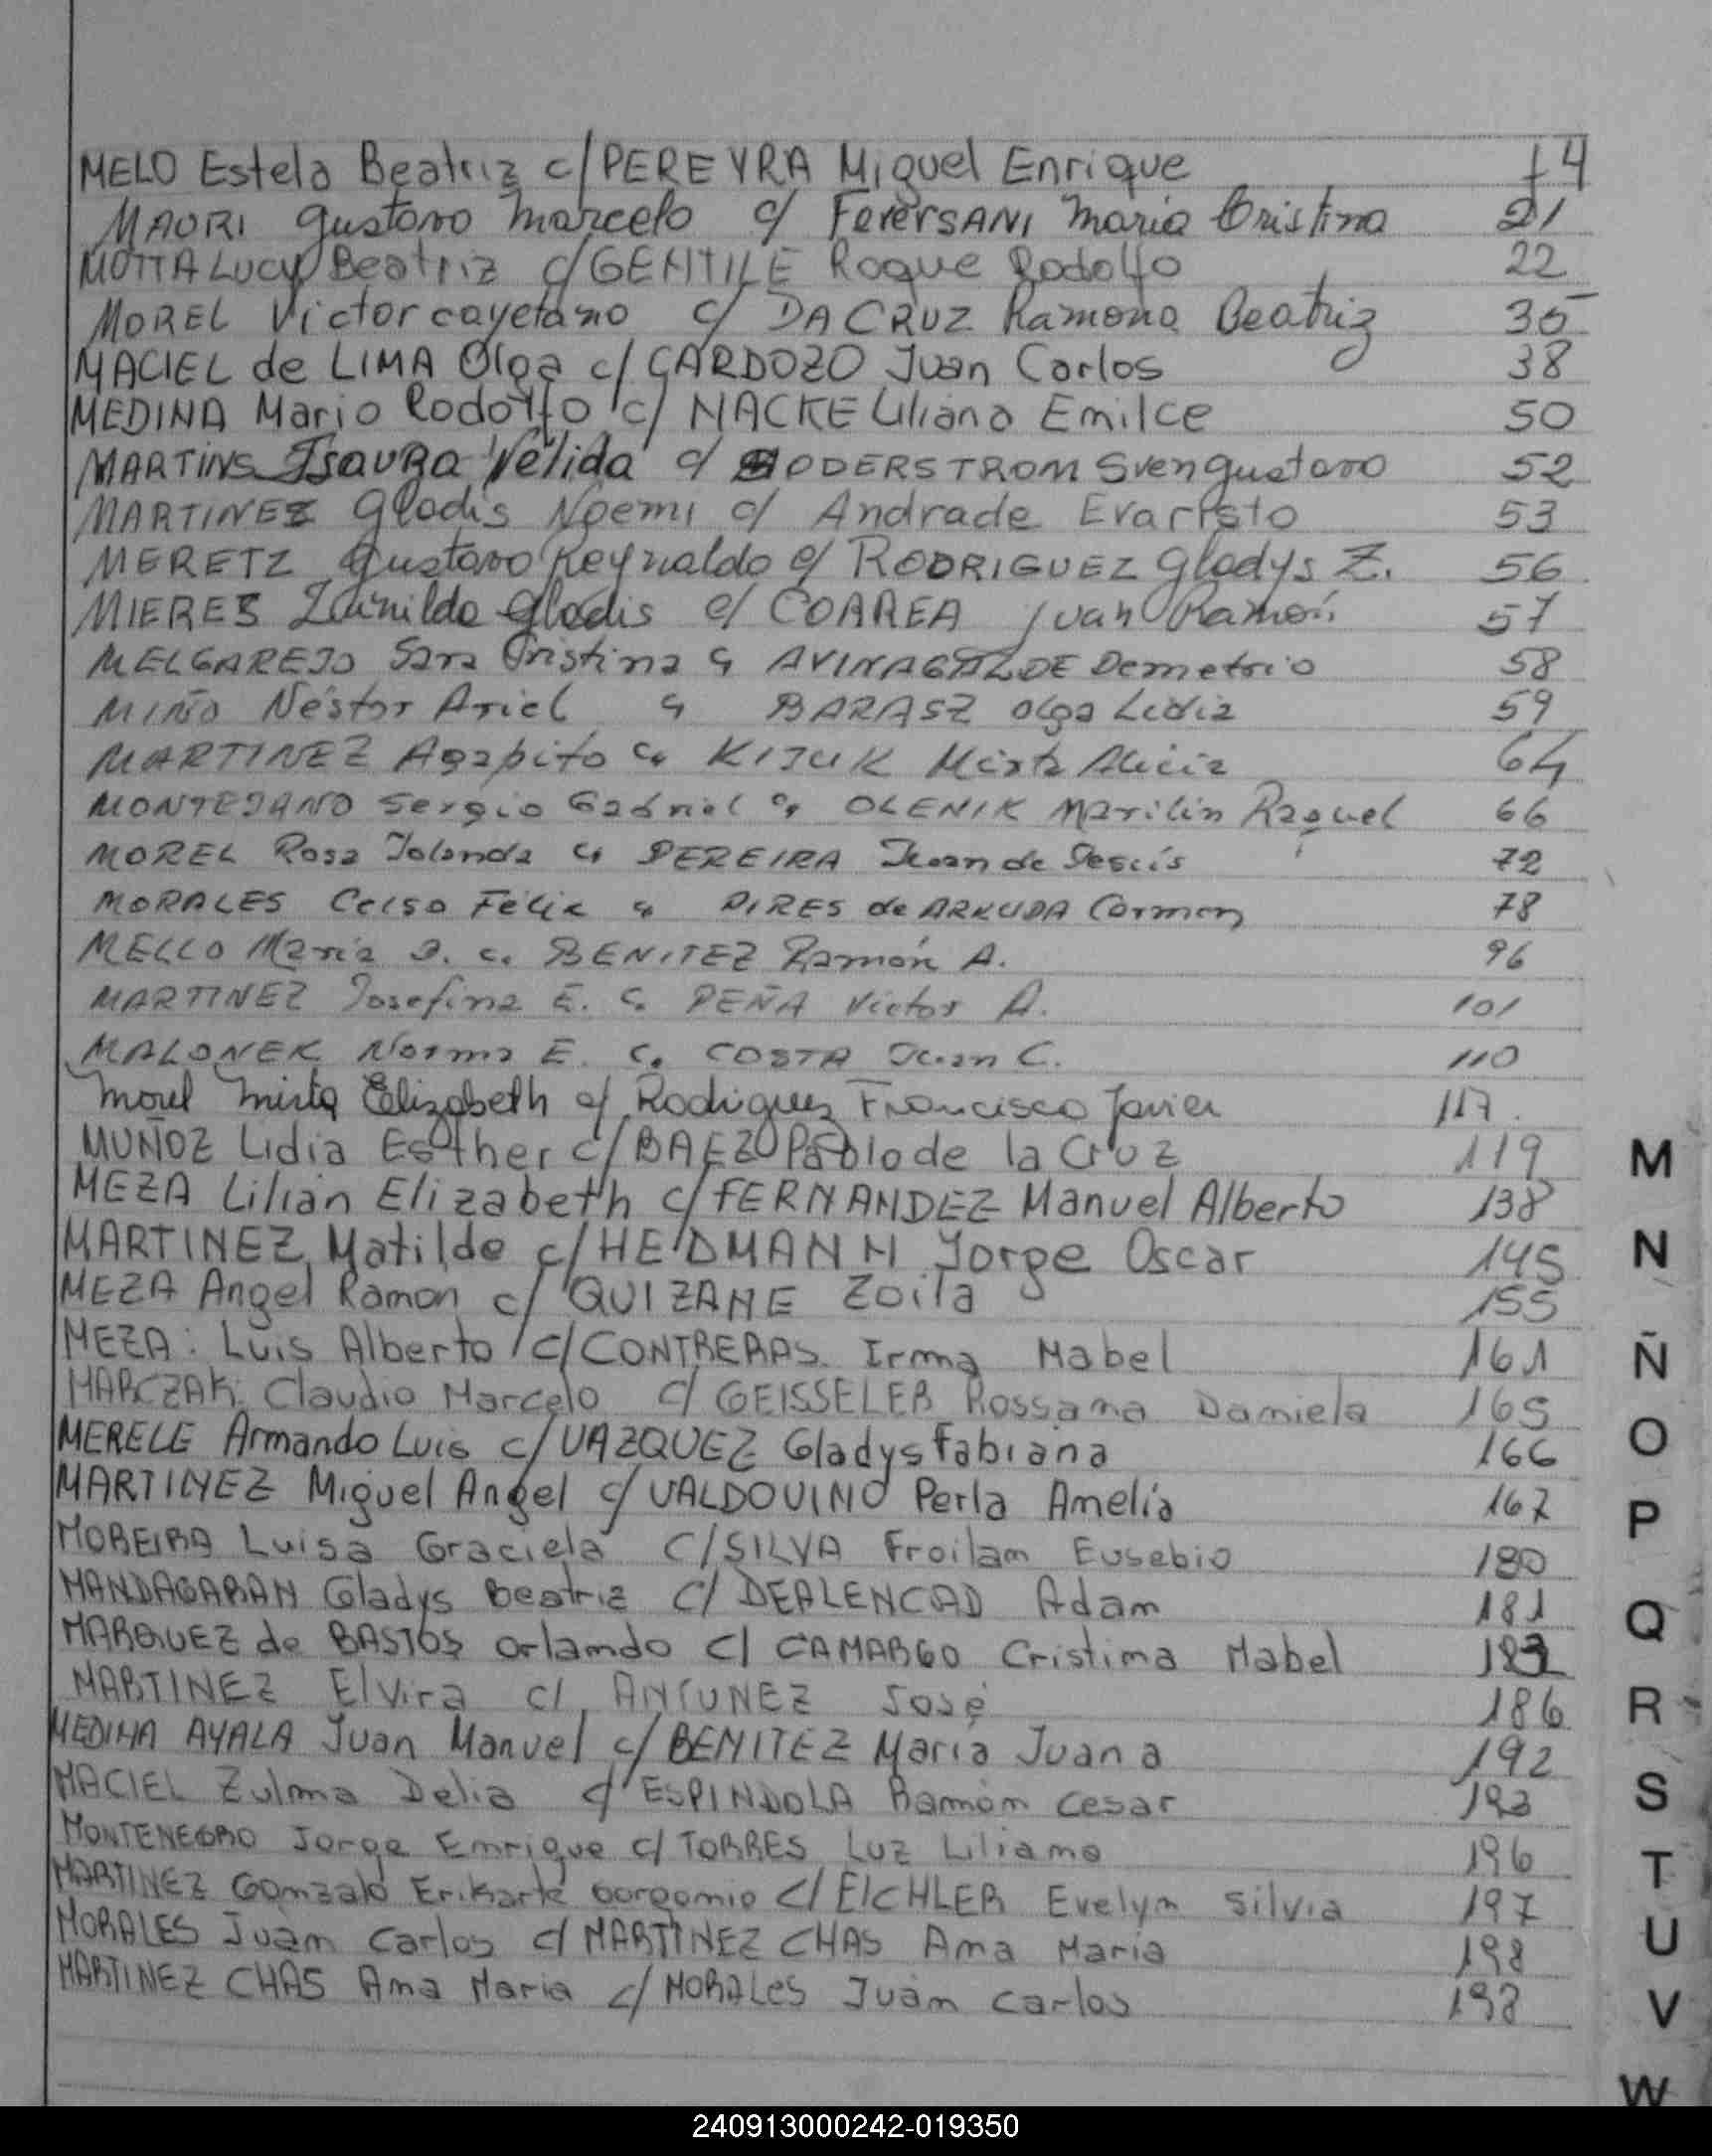 MELO Estela Beatriz c/ PEREYRA Miguel Enrique 14
MAORI Gustavo Marcelo c/ FEVERSANI Maria Cristina 21
MOTTA Lucy Beatriz c/ GENTILE Roque Rodolfo 22
MOREL Victor cayetano c/ DA CRUZ Ramona Beatriz 35
MACIEL de LIMA Olga c/ CARDOZO Juan Carlos 38
MEDINA Mario Rodolfo c/ NACKE Liliana Emilce 50
MARTINS Isaura Nélida c/ SODERSTROM Sven gustavo 52
MARTINEZ Gladis Noemi c/ Andrade Evaristo 53
MERETZ Gustavo Reynaldo c/ RODRIGUEZ Gladys Z. 56
MIERES Zunilda Gladis c/ COAREA Juan Ramón 57
MELGAREJO Sara Cristina c/ AVINAGALDE Demetrio 58
MIÑO Néstor Ariel c/ BARASZ Olga Lidia 59
MARTINEZ Agapito c/ KIJUK Mirta Alicia 64
MONTEJANO Sergio Gabriel c/ OLENIK Marilin Raquel 66
MOREL Rosa Iolanda c/ PEREIRA Juan de Jesús 72
MORALES Celso Félix c/ PIRES de ARRUDA Carmen 78
MELLO Maria J. c. BENITEZ Ramón A. 96
MARTINEZ Josefina E. c. PEÑA Victor A. 101
MALONEK Norma E. c. COSTA Juan C. 110
Morel Mirta Elizabeth c/ Rodriguez Francisco Javier 117.
MUÑOZ Lidia Esther c/ BAEZ Pablo de la Cruz 119
MEZA Lilian Elizabeth c/ FERNANDEZ Manuel Alberto 138
MARTINEZ Matilde c/ HEIDMANN Jorge Oscar 145
MEZA Angel Ramon c/ QUIZAME Zoila 155
MEZA: Luis Alberto c/ CONTRERAS. Irma Mabel 161
MARCZAK: Claudio Marcelo c/ GEISSELER Rossana Daniela 165
MERELE Armando Luis c/ VAZQUEZ Gladys Fabiana 166
MARTINEZ Miguel Angel c/ VALDOVINO Perla Amelia 167
MOREIRA Luisa Graciela c/ SILVA Froilam Eusebio 180
MANDAGARAN Gladys Beatriz c/ DEALENCAD Adam 181
MARQUEZ de BASTOS Orlamdo c/ CAMARGO Cristima Mabel
MARTINEZ Elvira c/ ANTUNEZ José 186
MEDINA AYALA Juan Manuel c/ BENITEZ Maria Juana 192
MACIEL Zulma Delia c/ ESPINDOLA Ramóm Cesar 193
MONTENEGRO Jorge Emrique c/ TORRES Luz Liliama 196
MARTINEZ Gomzalo c/ EICHLER Evelym Silvia 197
MORALES Juam Carlos c/ MARTINEZ CHAS Ama Maria 198
MARTINEZ CHAS Ama Maria c/ MORALES Juám Carlos 198
M
N
Ñ
O
P
Q
R
S
T
U
V
W
240913000242-019350